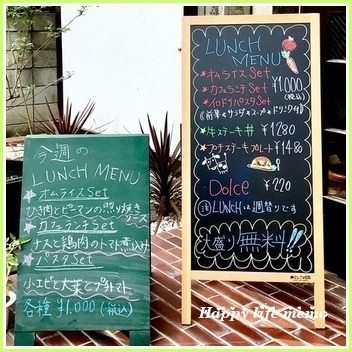 今週の
LUNCH MENU
★オムライスSet
ひき肉とピーマンの照り焼き
ソース
★カフェランチSet
ナスと鶏肉のトマト煮込み
★パスタSet
小エビと大葉とプチトマト
各種 ¥1,000 (税込)
LUNCH
MENU
★オムライスSet
★カフェランチSet ¥1,000
(税込)
★イロドリパスタSet
《前菜+サラダ+スープ+ドリンク付》
★牛ステーキ丼 ¥1280
★プチステーキプレート ¥1480
・Dolce ¥220
LUNCHは週替りです
大盛り無料!!
Happy life memo